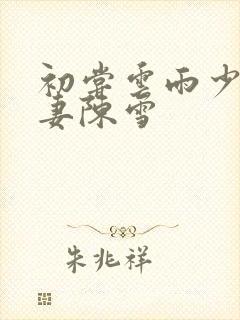 初尝雲雨少
妻陳雪
朱兆祥